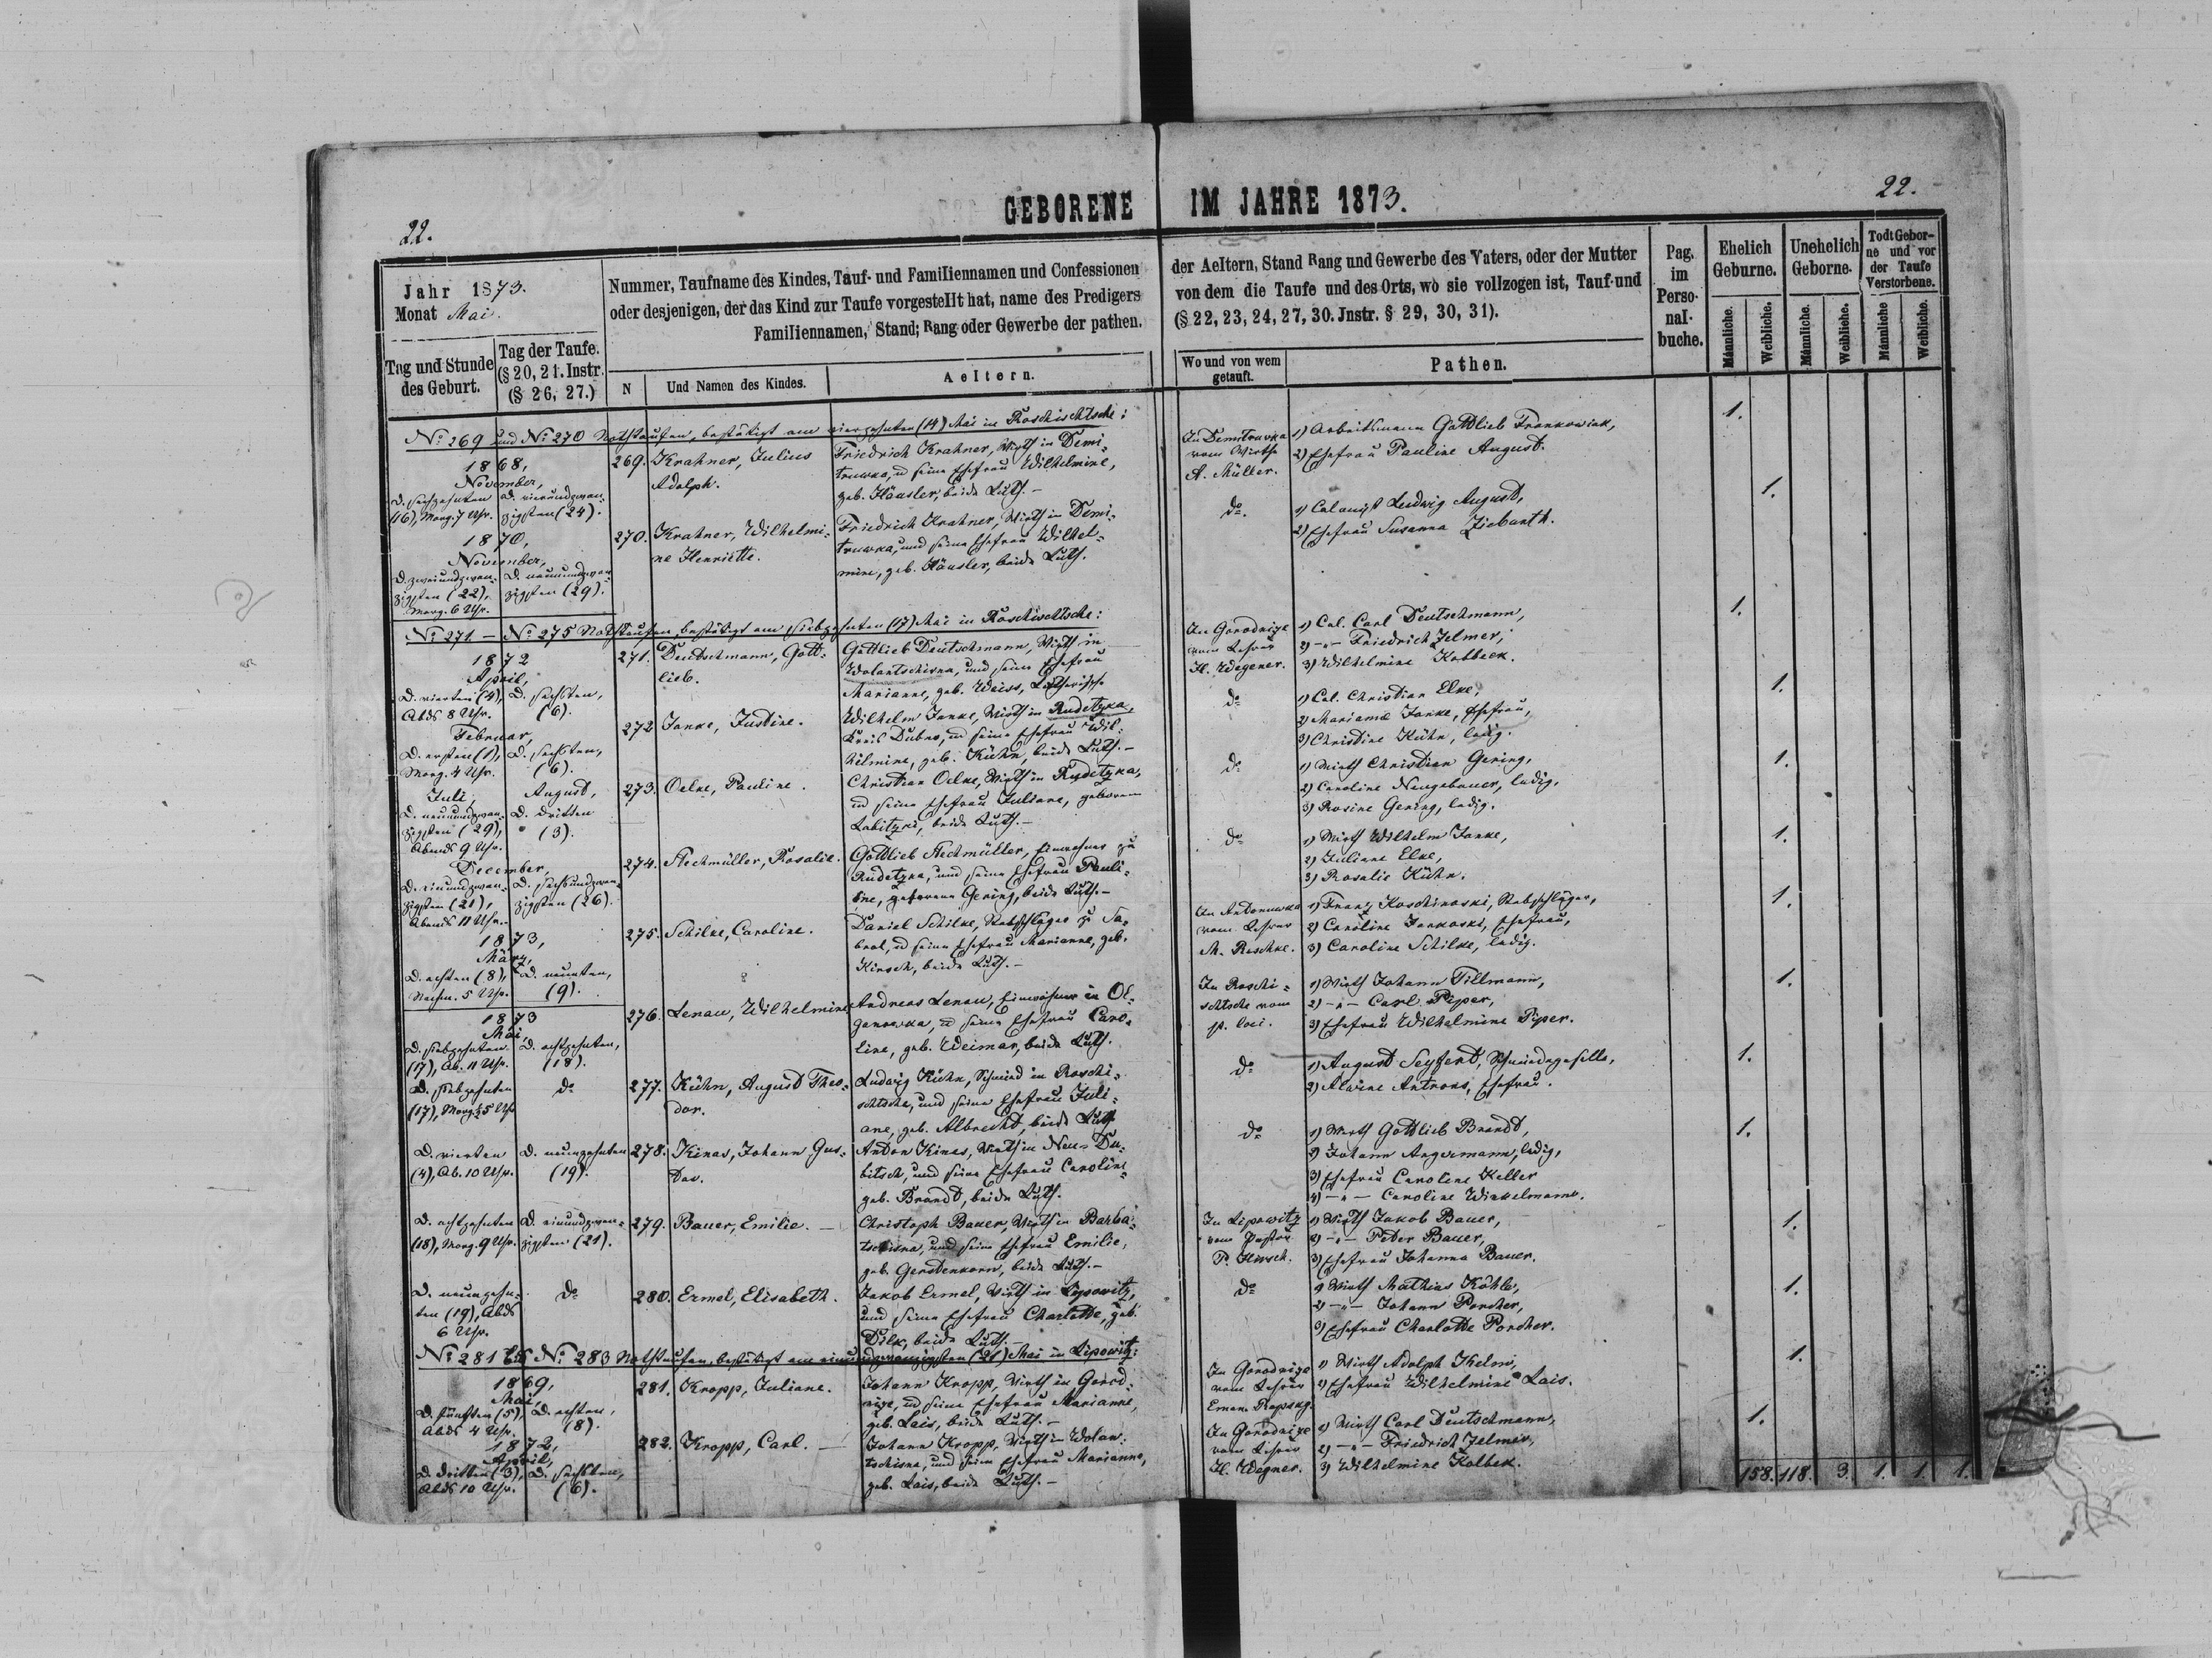 22.
GEBORENE IM JAHRE 1873.
22.
Jahr 1873.
Monat Mai.
Tag und Stunde des Geburt.
Tag der Taufe.
(§ 20, 21. Instr.
(§ 26, 27.)
Nummer, Taufname des Kindes, Tauf- und Familiennamen und Confessionen
oder desjenigen, der das Kind zur Taufe vorgestellt hat, name des Predigers
Familiennamen, Stand; Rang oder Gewerbe der pathen.
N
Und Namen des Kindes.
Aeltern.
der Aeltern, Stand Rang und Gewerbe des Vaters, oder der Mutter
von dem die Taufe und des Orts, wo sie vollzogen ist, Tauf-und
(§ 22, 23, 24, 27, 30. Jnstr. § 29, 30, 31).
Wo und von wem
getauft.
Pathen.
Pag.
im
Perso-
nal-
buche.
Ehelich
Geburne.
Unehelich
Geborne.
Todt Gebor-
ne und vor
der Taufe
Verstorbene.
Männliche.
Weibliche.
Männliche.
Weibliche.
Männliche
Weibliche.
No 269 und No 270 Nothtaufen, bestätigt am vierzehnten (14) Mai in Roschischtsche:
1868,
November,
D. sechzehnten
(16), Morg. 7 Uhr.
D. vierundzwan-
zigsten (24).
269. Krahner, Julius
Adolph.
Friedrich Krahner, Wirth in Demi-
truwka, u seine Ehefrau Wilhelmine,
geb. Häusler, beide Luth. –
In Demitruwka
vom Wirthe
A. Müller.
1) Arbeitsmann Gottlieb Frankowiak,
2) Ehefrau Pauline August.
1.
1870,
November,
D. zweiundzwan-
zigsten (22),
Morg. 6 Uhr.
D. neunundzwan-
zigsten (29).
270. Krahner, Wilhelmi-
ne Henriette.
Friedrich Krahner, Wirth in Demi-
truwka, und seine Ehefrau Wilhel-
mine, geb. Häusler, beide Luth.
do.
1) Colonist Ludwig August,
2) Ehefrau Susanna Ziebarth.
1.
No 271 – No 275 Nothtaufen, bestätigt am siebzehnten (17) Mai in Roschischtsche:
1872
April,
D. vierten (4),
Abds 8 Uhr.
D. sechsten,
(6).
271. Deutschmann, Gott-
lieb.
Gottlieb Deutschmann, Wirth in
Wolantschisna, und seine Ehefrau
Marianne, geb. Weiss, Lutherisch
In Gorodnize
vom Lehrer
H. Wegener.
1) Col. Carl Deutschmann,
2) -"- Friedrich Zelmer,
3) Wilhelmine Kolbeck.
1.
Februar,
D. ersten (1),
Morg. 4 Uhr.
D. sechsten,
(6).
272 Janke, Justine.
Wilhelm Janke, Wirth in Rudetzka,
Kreis Dubno, u seine Ehefrau Wil-
helmine, geb. Kühn, beide Luth. –
do
1) Col. Christian Elke,
2) Marianne Janke, Ehefrau,
3) Christine Kühn, ledig.
1.
Juli,
D. neunundzwan-
zigsten (29),
Abends 9 Uhr.
August,
D. dritten
(3).
273. Oelke, Pauline.
Christian Oelke, Wirth in Rudetzka,
u seine Ehefrau Juliane, geborene
Labitzki, beide Luth. –
do
1) Wirth Christian Gering,
2) Caroline Neugebauer, ledig,
3) Rosine Gering, ledig.
1.
December,
D. einundzwan-
zigsten (21),
Abends 11 Uhr.
D. sechsundzwan-
zigsten (26).
274. Stechmüller, Rosalie.
Gottlieb Stechmüller, Einwohner zu
Rudetzka, und seine Ehefrau Pauli-
ne, geborene Gering, beide Luth. –
do
1) Wirth Wilhelm Janke,
2) Juliane Elke,
3) Rosalie Kühn.
1.
1873,
März,
D. achten (8),
Nachm. 5 Uhr.
D. neunten,
(9).
275. Schilke, Caroline.
Daniel Schilke, Stabschläger zu Sa-
brol, u seine Ehefrau Marianne, geb.
Kirsch, beide Luth. –
In Antonuwka
vom Lehrer
M. Reschke.
1) Franz Koschinoski, Stabschläger,
2) Caroline Jankoski, Ehefrau,
3) Caroline Schilke, ledig.
1.
1873
Mai,
D. siebzehnten
(17), Ab. 11 Uhr.
D. achtzehnten,
(18).
276. Lenau, Wilhelmine
Andreas Lenau, Einwohner in Ol-
ganowka, u seine Ehefrau Caro-
line, geb. Weimar, beide Luth.
In Roschi-
schtsche vom
p. loci.
1) Wirth Johann Tillmann,
2) -"- Carl Piper,
3) Ehefrau Wilhelmine Piper.
1.
D. siebzehnten
(17), Morg. 5 Uhr
do
277. Kühn, August Theo-
dor.
Ludwig Kühn, Schmied in Roschi-
schtsche, und seine Ehefrau Juli-
ane, geb. Albrecht, beide Luth
do
1) August Seyferd, Schmiedegeselle,
2) Alwine Antrons, Ehefrau.
1.
D. vierten
(4), Ab. 10 Uhr.
D. neunzehnten
(19).
278. Kinas, Johann Gus-
tav.
Anton Kinas, Wirth in Neu-Du-
bitsch, und seine Ehefrau Caroline
geb. Brandt, beide Luth.
do
1) Wirth Gottlieb Brandt,
2) Johann Angermann, ledig,
3) Ehefrau Carolene Keller
4) -"- Caroline Winkelmann.
1.
D. achtzehnten
(18), Morg. 9 Uhr.
D. einundzwan-
zigsten (21).
279. Bauer, Emilie. –
Christoph Bauer, Wirth in Barba-
tschisna, und seine Ehefrau Emilie,
geb. Gerstenkorn, beide Luth. –
In Lipowitz
vom Pastor
P. Kirsch.
1) Wirth Jakob Bauer,
2) -"- Peter Bauer,
3) Ehefrau Johanna Bauer.
1.
D. neunzehn-
ten (19), Abds
6 Uhr.
do
280. Ermel, Elisabeth.
Jakob Ermel, Wirth in Lipowitz,
und seine Ehefrau Charlotte, geb.
Dilk, beide Luth. –
do
1) Wirth Mathias Köhle,
2) -"- Johann Porcher,
3) Ehefrau Charlotte Porcher.
1.
No 281 bis No 283 Nothtaufen, bestätigt am einundzwanzigsten (21) Mai in Lipowitz:
1869,
Mai,
D. fünften (5),
Abds 4 Uhr.
D. achten,
(8).
281. Kropp, Juliane.
Johann Kropp, Wirth in Gorod-
nize, u seine Ehefrau Marianne,
geb. Lais, beide Luth. –
In Gorodnize
vom Lehrer
Eman. Rapszg.
1) Wirth Adolph Helm,
2) Ehefrau Wilhelmine Lais.
1.
1872,
April,
D. dritten (3),
Abds 10 Uhr.
D. sechsten,
(6).
282. Kropp, Carl. –
Johann Kropp, Wirth in Wolan-
tschisna, und seine Ehefrau Marianne,
geb. Lais, beide Luth. –
In Gorodnize
vom Lehrer
H. Wegner.
1) Wirth Carl Deutschmann,
2) -"- Friedrich Zelmer,
3) Wilhelmine Kolbek.
1.
158. 118. 3. 1. 1. 1.